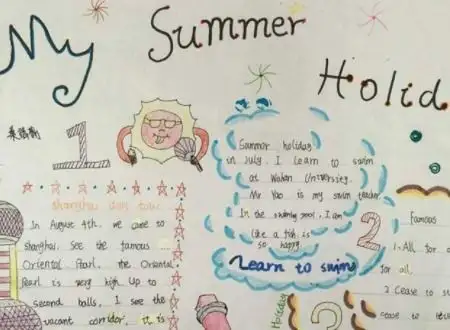 My Summer
Holid
1
shanghai day tour
In August 4th, we came to
shanghai. See the famous
Oriental Pearl, the Oriental
Pearl is very high Up to
second balls, I see the
vacant corridor, it is
Summer holiday
in July, I learn to swim
at Wuhan University.
Mr Yao is my swim teacher.
In the swimming pool, I am
like a fish is
so happy.
Learn to swimg
2
Famous
1. All for
for all.
2. Cease to
cease to
Holiday
3